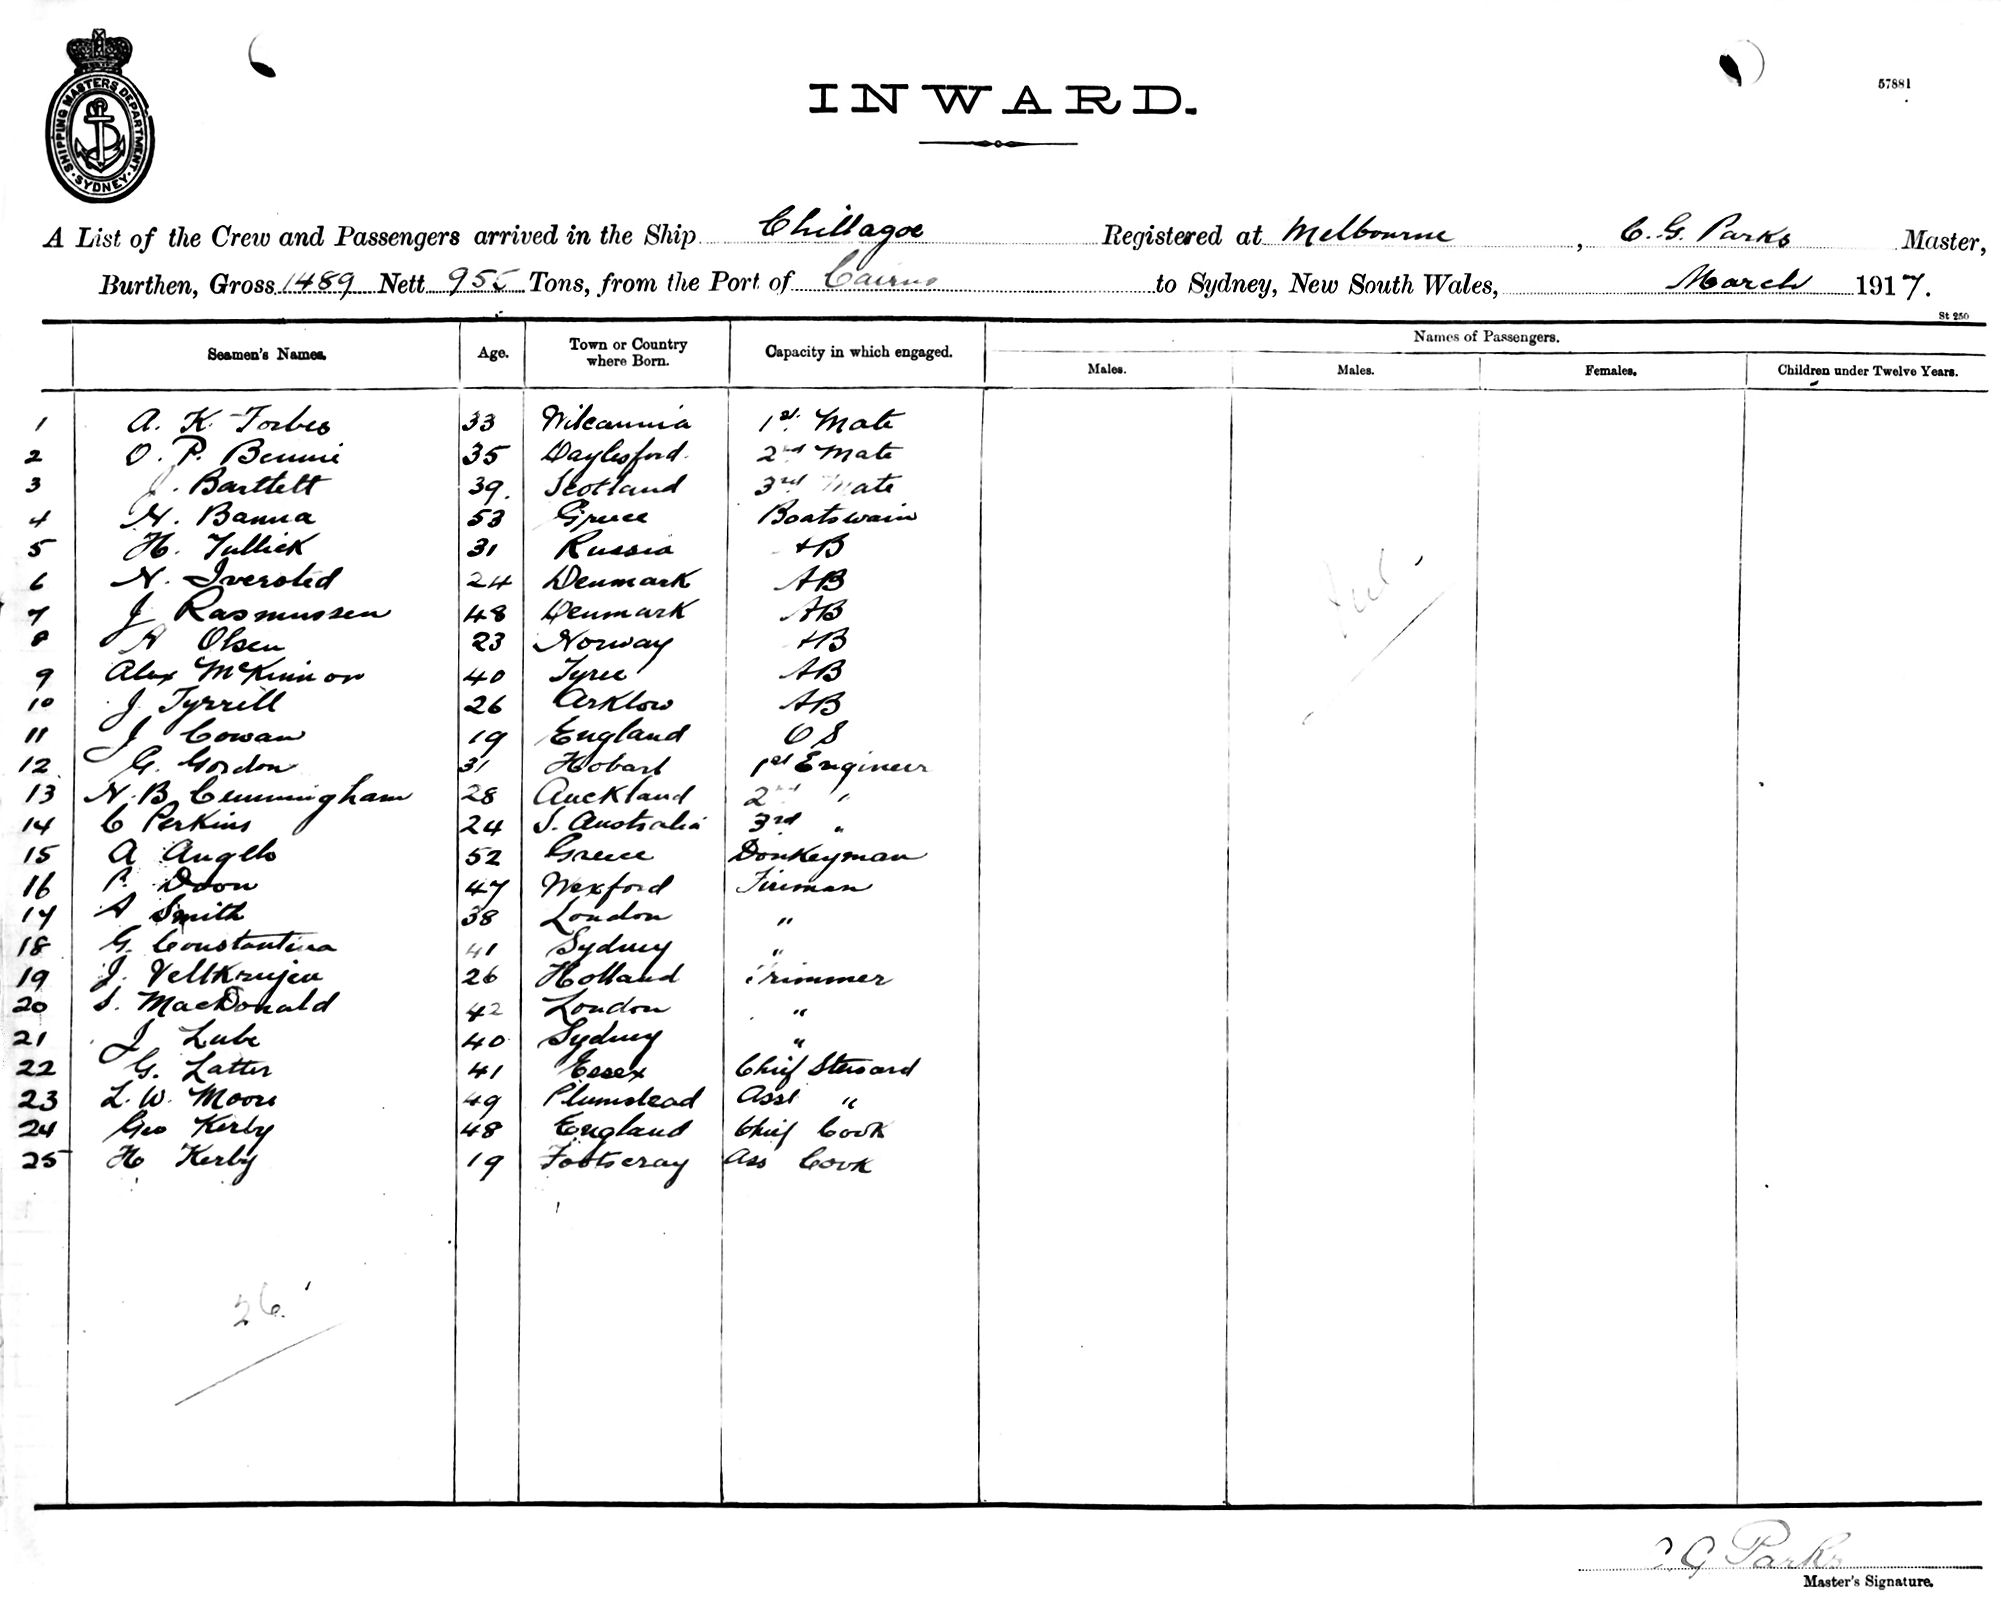 SHIPPING MASTERS DEPARTMENT. SYDNEY.
INWARD.
57881
A List of the Crew and Passengers arrived in the Ship Chillagoe Registered at Melbourne, C. G. Parks Master,
Burthen, Gross 1489 Nett 955 Tons, from the Port of Cairns to Sydney, New South Wales, March 1917.
St 250
Seamen's Names. Age. Town or Country where Born. Capacity in which engaged. Names of Passengers.
Males. Males. Females. Children under Twelve Years.
1 A. K. Forbes 33 Wilcannia 1st. Mate
2 O. P. Bennie 35 Daylesford. 2nd Mate
3 J. Bartlett 39. Scotland 3rd Mate
4 N. Banna 53 Greece Boatswain
5 H. Tullick 31 Russia AB
6 N. Iversted 24 Denmark AB
7 J Rasmussen 48 Denmark AB
8 A Olsen 23 Norway AB
9 Alex McKinnon 40 Tyree AB
10 J Tyrrill 26 Arklow AB
11 J Cowan 19 England OS
12 G. Gordon 31 Hobart 1st Engineer
13 N. B. Cunningham 28 Auckland 2nd "
14 C Perkins 24 S. Australia 3rd "
15 A Angelo 52 Greece Donkeyman
16 P. Doon 47 Wexford Fireman
17 A Smith 38 London "
18 G. Constantina 41 Sydney "
19 J. 26 Holland Trimmer
20 S. MacDonald 42 London "
21 J Lube 40 Sydney "
22 G. Latter 41 Essex Chief Steward
23 L. W. Moore 49 Plumstead Asst "
24 Geo Kerby 48 England Chief Cook
25 H Kerby 19 Footscray Ass Cook
26.
C G Parks
Master's Signature.